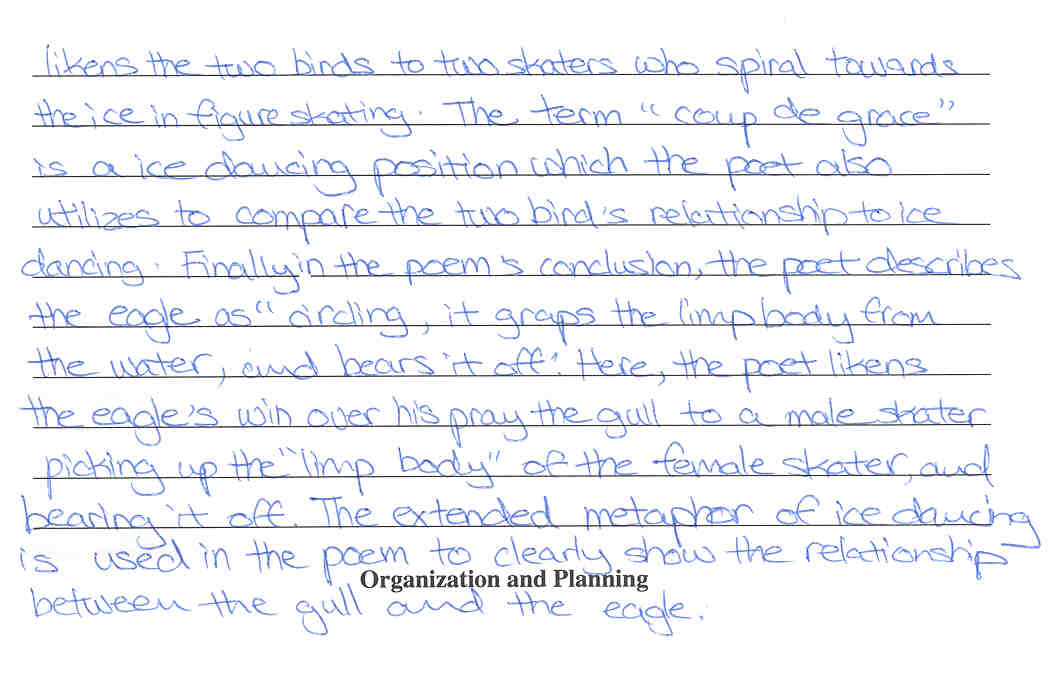 likens the two birds to two skaters who spiral towards
the ice in figure skating. The term "coup de grace"
is a ice dancing position which the poet also
utilizes to compare the two bird's relationship to ice
dancing. Finally in the poem's conclusion, the poet describes
the eagle as "circling, it graps the limp body from
the water, and bears it off". Here, the poet likens
the eagle's win over his pray the gull to a male skater
picking up the "limp body" of the female skater, and
bearing it off. The extended metaphor of ice dancing
is used in the poem to clearly show the relationship
Organization and Planning
between the gull and the eagle.